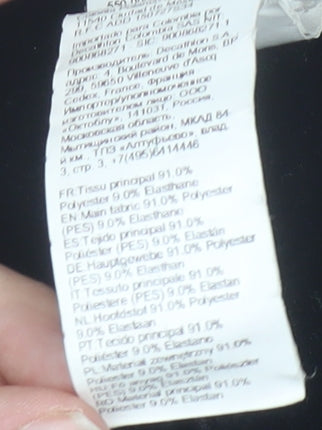 11540 Ciudad de Méx
R F C ADD
Importado para Colombia por
Decathlon Colombia SAS NIT
900868271 SIC 900868271 1
Производитель: Decathlon S.A.,
адрес: 4, Boulevard de Mons, BP
299, 59650 Villeneuve d'Ascq
Cedex, France, Франция
Импортер/уполномоченное
изготовителем лицо: ООО
«Октоблу», 141031, Россия,
Московская область,
Мытищинский район, МКАД 84-
й км., ТПЗ «Алтуфьево», влад.
3, стр. 3, +7(495)6414446
FR Tissu principal 91.0%
Polyester 9.0% Elasthane
EN Main fabric 91.0% Polyester
(PES) 9.0% Elasthane
ES Tejido principal 91.0%
Poliéster (PES) 9.0% Elastán
DE Hauptgewebe 91.0% Polyester
(PES) 9.0% Elasthan
IT Tessuto principale 91.0%
Poliestere (PES) 9.0% Elastan
NL Hoofdstof 91.0% Polyester
9.0% Elastaan
PT Tecido principal 91.0%
Poliéster 9.0% Elastano
PL Materiał zewnętrzny 91.0%
Poliester 9.0% Elastan
(PES) 9.0% Elasztán
RO Material principal 91.0%
Poliester 9.0% Elastan